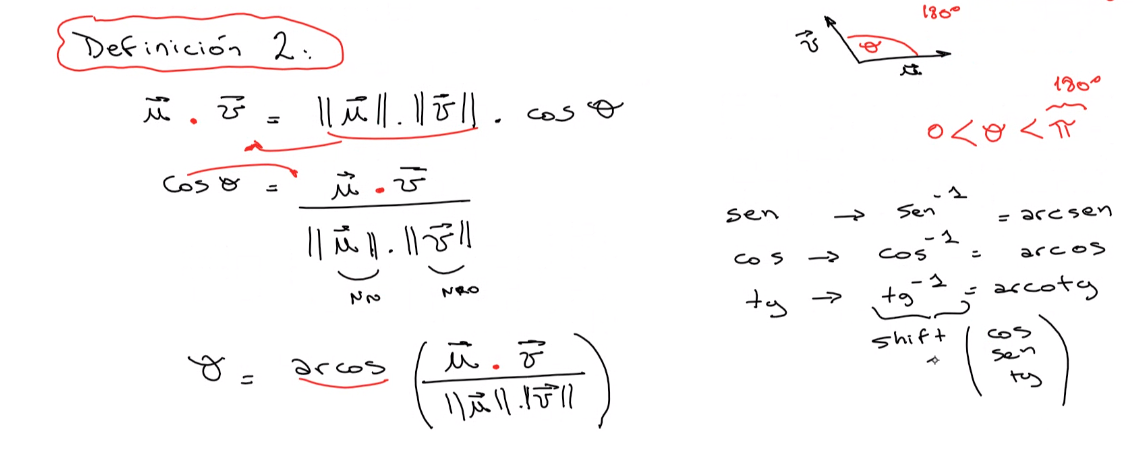 Definición 2:
u⃗ . v⃗ = ||u⃗|| . ||v⃗|| . cos θ
cos θ = u⃗ . v⃗ / ||u⃗|| . ||v⃗||
Nro Nro
θ = arcos ( u⃗ . v⃗ / ||u⃗|| . ||v⃗|| )
180°
v⃗ θ u⃗
180°
0 < θ < π
sen → sen⁻¹ = arcsen
cos → cos⁻¹ = arcos
tg → tg⁻¹ = arcotg
shift ( cos
sen
tg )